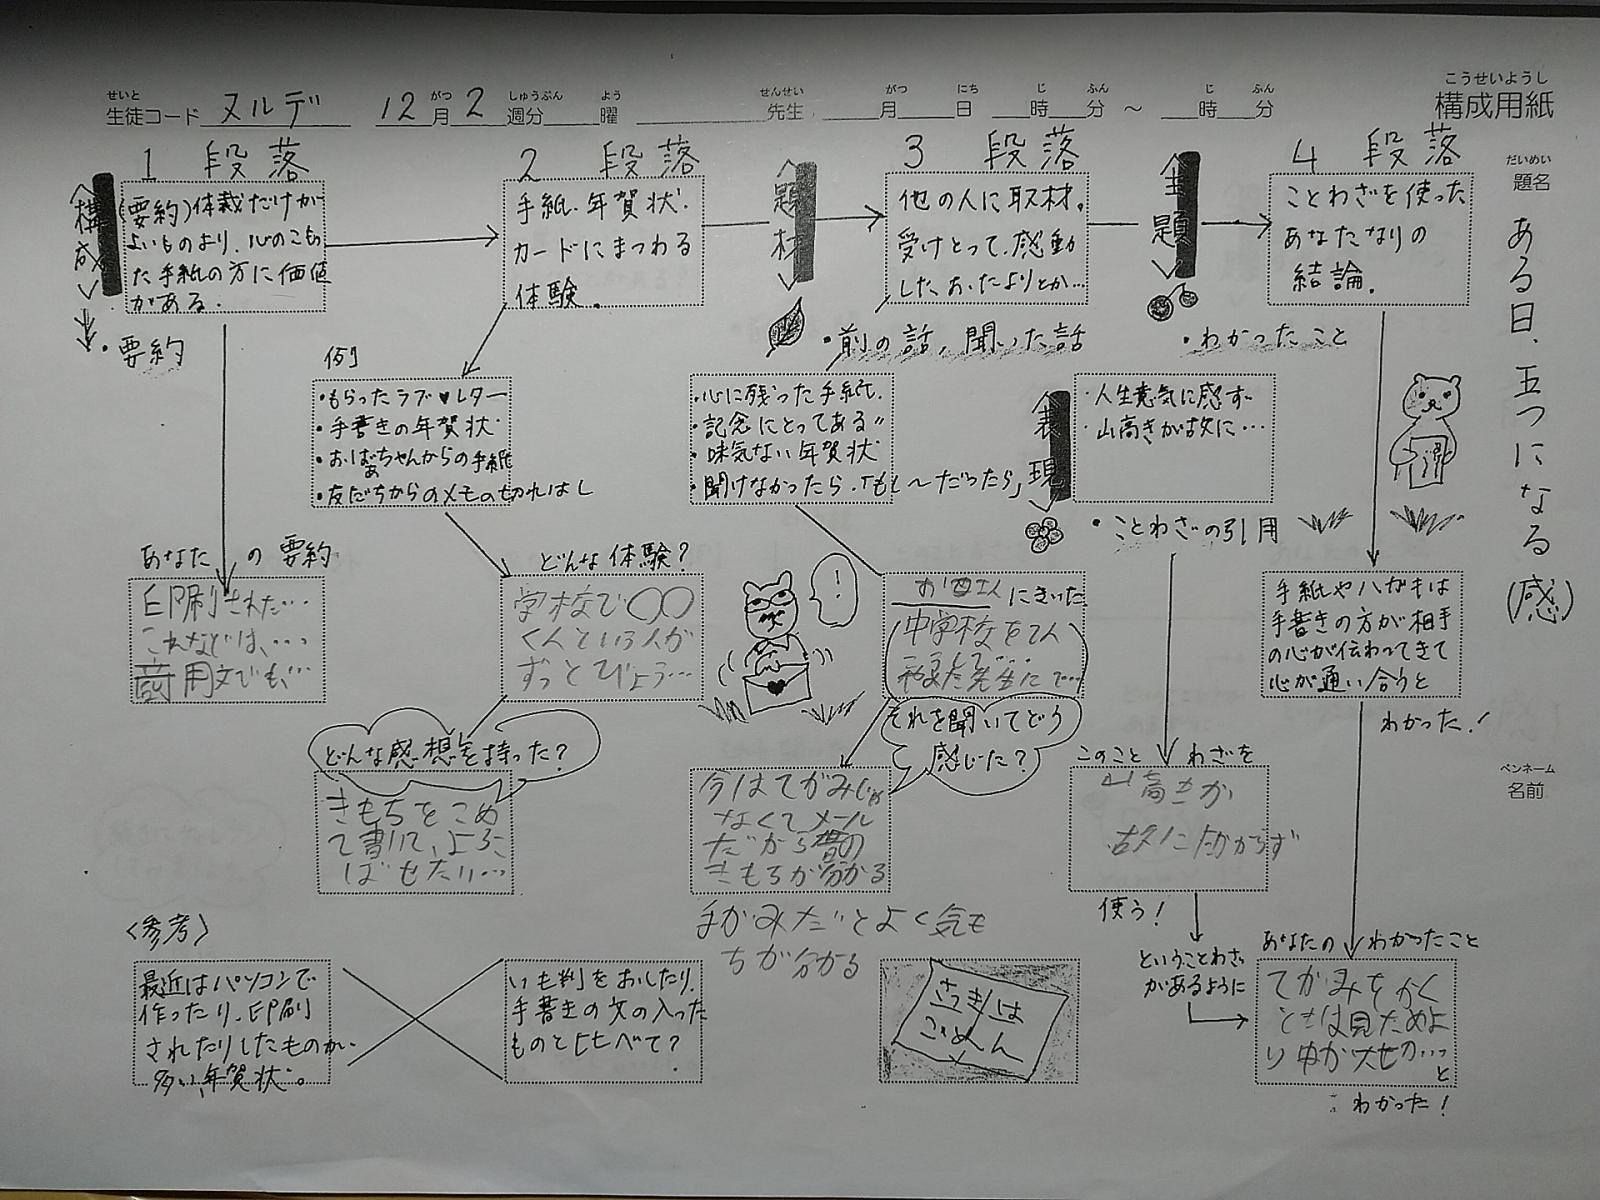 こうせいようし
構成用紙
せいと
生徒コード ヌルデ 12月2週分 曜 先生 月 日 時 分 ～ 時 分
がつ しゅうぶん よう せんせい がつ にち じ ふん じ ふん
だいめい
題名
ある日、五つになる(感)
ペンネーム
名前
1 段落
構成
(要約)体裁だけが
よいものより、心のこもっ
た手紙の方に価値
がある。
・要約
2 段落
手紙、年賀状、
カードにまつわる
体験。
題材
3 段落
他の人に取材。
受けとって、感動
した、おたよりとか…
・前の話、聞いた話
主題
4 段落
ことわざを使った
あなたなりの
結論。
・わかったこと
例
・もらったラブ♥レター
・手書きの年賀状
・おばあちゃんからの手紙
・友だちからのメモの切れはし
・心に残った手紙。
・記念にとってある〃
・味気ない年賀状
・聞けなかったら、「もし〜だったら」
表現
・人生意気に感ず
・山高きが故に…
・ことわざの引用
あなたの要約
印刷された…
これなどは、…
商用文でも、…
どんな体験?
学校で〇〇
くんという人が
ずっとびょう…
どんな感想を持った?
きもちをこめ
て書いて、よろこ
ばせたい…
!
お母さんにきいた
中学校を
それを聞いてどう
感じた?
今はてがみじゃ
なくてメール
だから昔の
きもちが分かる
手がみだとよく気も
ちが分かる
このことわざを
山高きが
故にたっからず
使う!
ということわざ
があるように
手紙やハガキは
手書きの方が相手
の心が伝わってきて
心が通い合うと
わかった!
あなたのわかったこと
てがみをかく
ときは見ためよ
り中が大せつ…と
わかった!
〈参考〉
最近はパソコンで
作ったり、印刷
されたりしたものが
多い年賀状。
いも判をおしたり、
手書きの文の入った
ものと比べて?
さっきは
ごめん